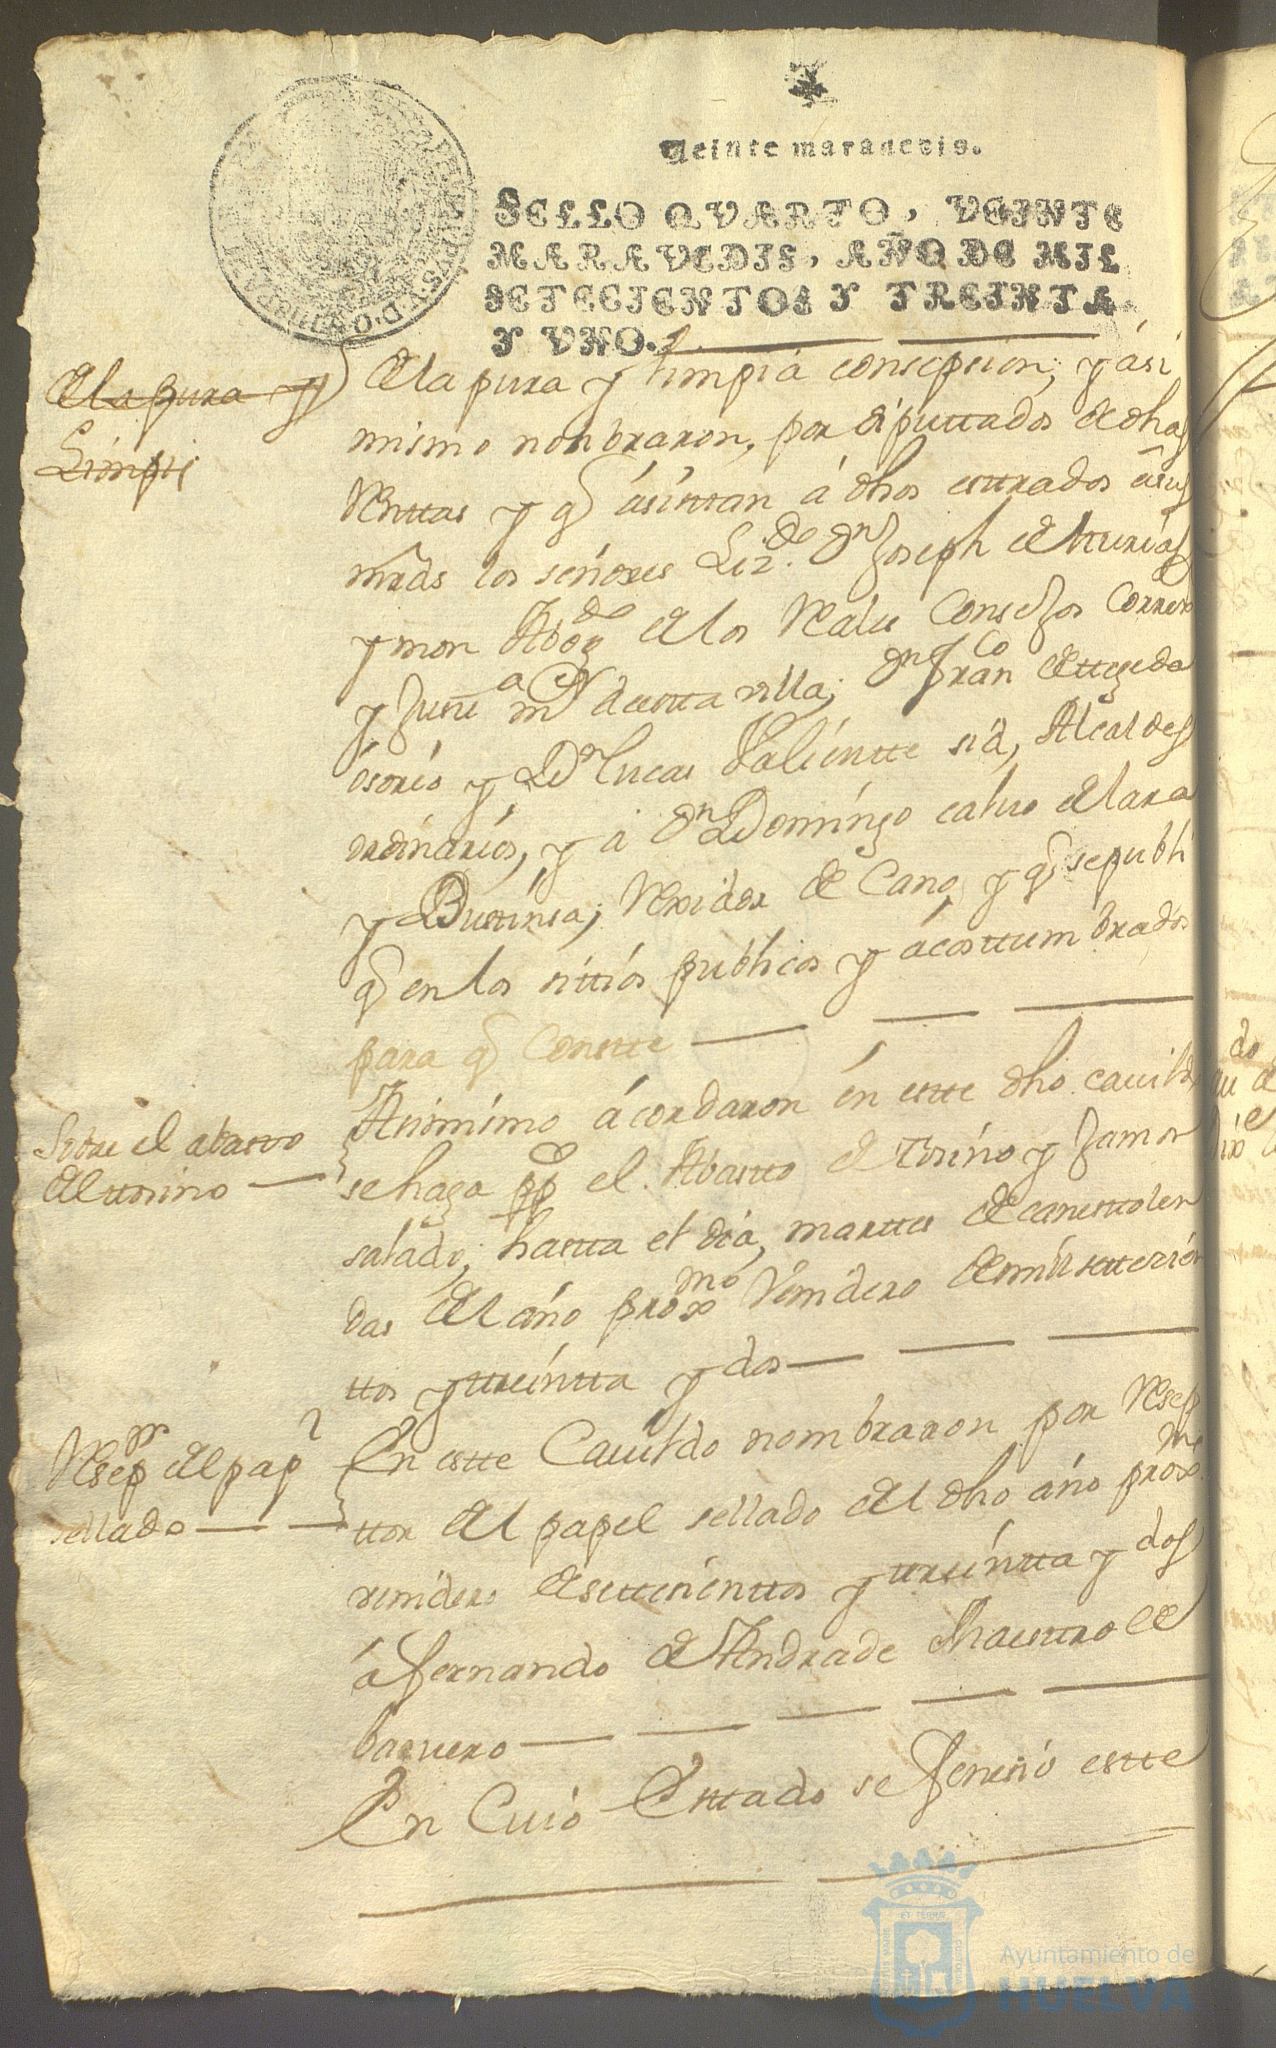 Veinte maravedis.
SELLO QVARTO, VEINTE
MARAVEDIS, AÑO DE MIL
SETECIENTOS Y TREINTA
Y VNO.
de la pura y
Limpi
de la pura y limpia consepsion, y ási
mismo nonbraron, por diputtados de dhas
Renttas y q ásisttan á dhos esttrados
mrds los señores Liz.do Dn Joseph de
y mon Abog.do de los Reales Consejos Correxor
y Justt.a mr de estta villa; Dn Fran.co de ttexeda
ósorio y Dn Lucas Valientte sid, Alcaldes
ordinarios, y á Dn Domingo calvo de lara
y Bustinsa; Rexidor de Cano, y q se publi
q en los sittiós publicos y ácosttumbrados
para q Constte
Asimismo ácordaron én estte dho cavildo
Sobre el abastto
se haga pp.co el Abastto de tosino y Jamon
del tosino
salado, hastta el dia, marttes de carnesttolen
das del áño prox.mo Venidero de mil settesién
ttos y ttreintta y dos
En estte Cavildo nombraron por Resep
Resep.or del pap.l
ttor del papel sellado del dho áño prox.mo
sellado
venidero de settesienttos y ttreintta y dos
á fernando de Andrade Maesttro de
baruero
En Cuió Esttado se fenesió estte
Ayuntamiento de
HUELVA